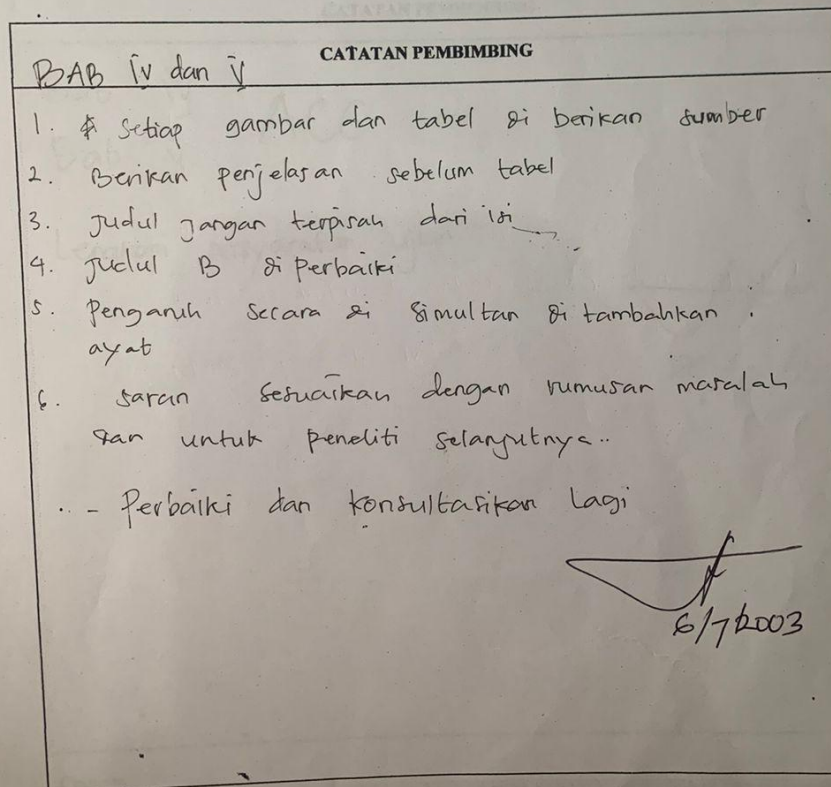 CATATAN PEMBIMBING
BAB IV dan V
1. Setiap gambar dan tabel di berikan sumber
2. Berikan penjelasan sebelum tabel
3. Judul jangan terpisah dari isi
4. Judul B di Perbaiki
5. Pengaruh secara di simultan di tambahkan
ayat
6. saran sesuaikan dengan rumusan masalah
dan untuk peneliti selanjutnya..
- Perbaiki dan konsultasikan lagi
6/7/2003